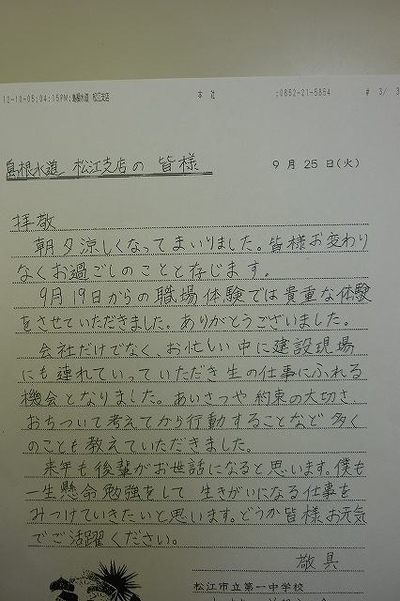 12-10-05;04:15PM;島根水道 松江支店 本 社 ;0852-21-5854 # 3/ 3
島根水道 松江支店の 皆様
9 月 25 日(火)
拝敬
朝夕涼しくなってまいりました。皆様お変わり
なくお過ごしのことと存じます。
9月19日からの職場体験では貴重な体験
をさせていただきました。ありがとうございました。
会社だけでなく、お忙しい中に建設現場
にも連れていっていただき生の仕事にふれる
機会となりました。あいさつや約束の大切さ、
おちついて考えてから行動することなど多く
のことも教えていただきました。
来年も後輩がお世話になると思います。僕も
一生懸命勉強をして生きがいになる仕事を
みつけていきたいと思います。どうか皆様お元気
でご活躍ください。
敬具
松江市立第一中学校